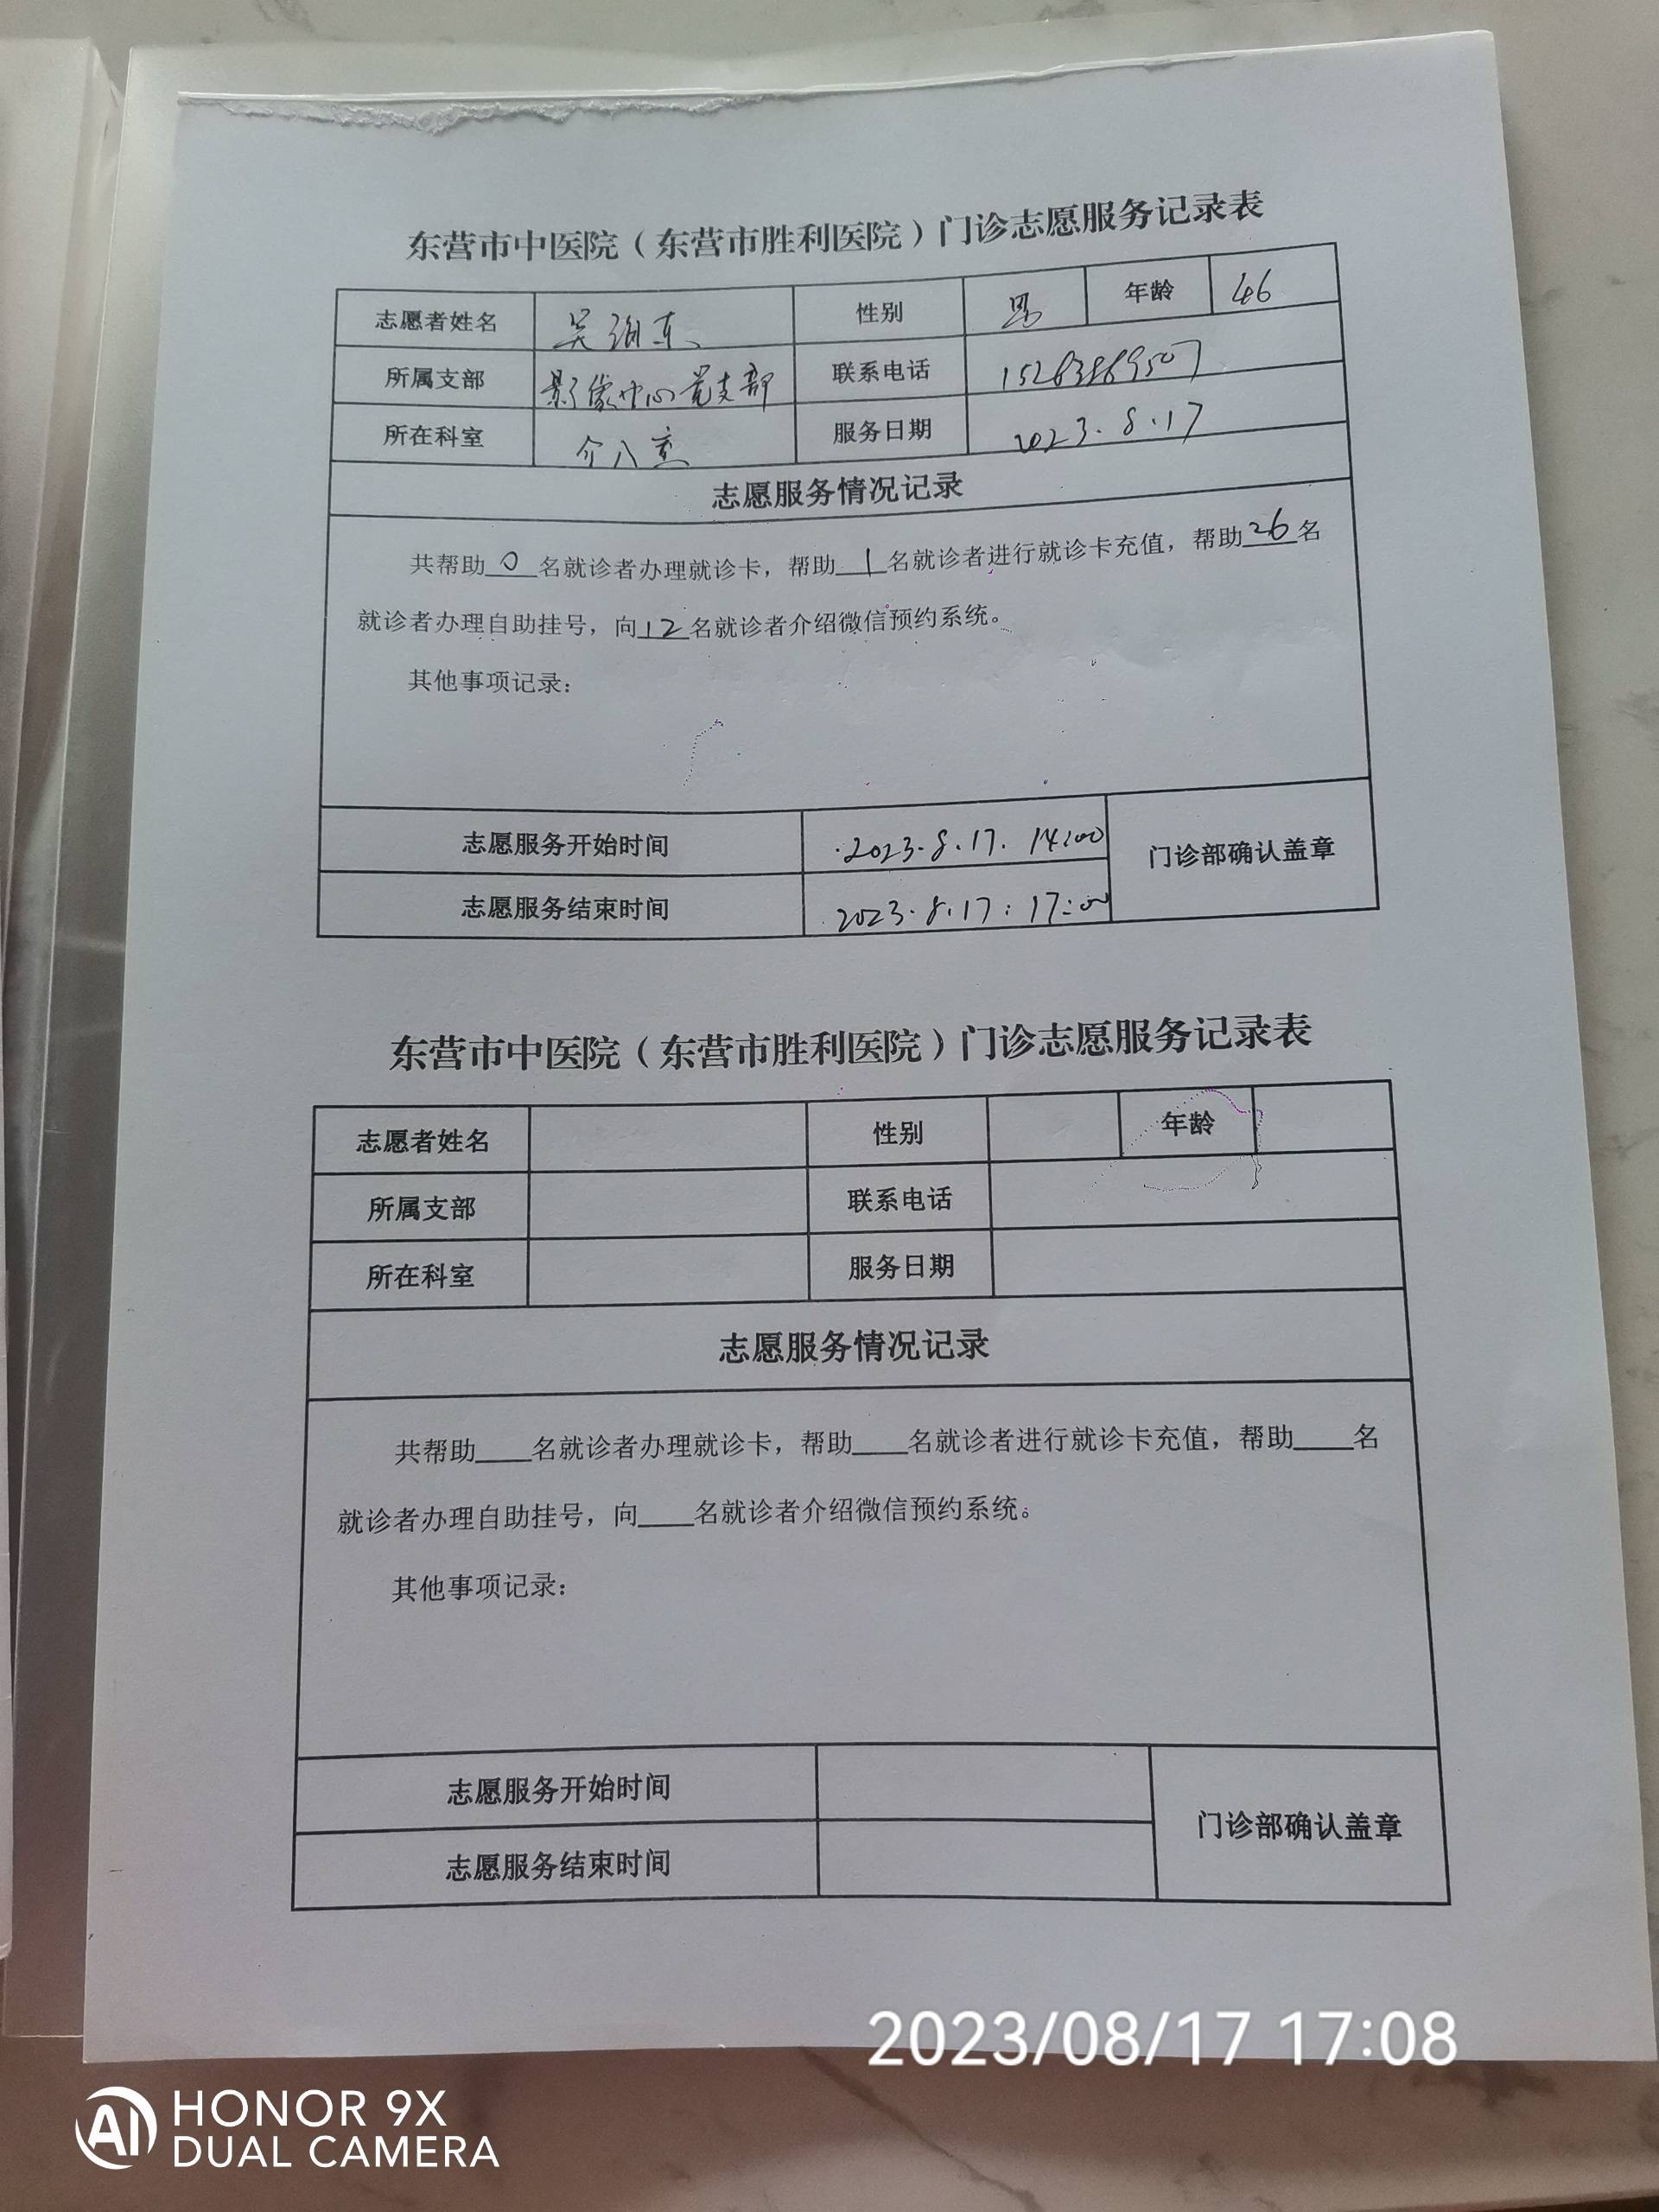 东营市中医院（东营市胜利医院）门诊志愿服务记录表
志愿者姓名 吴 东 性别 男 年龄 46
所属支部 影像中心党支部 联系电话
所在科室 介入室 服务日期 2023.8.17
志愿服务情况记录
共帮助 0 名就诊者办理就诊卡，帮助 1 名就诊者进行就诊卡充值，帮助 26 名
就诊者办理自助挂号，向 12 名就诊者介绍微信预约系统。
其他事项记录：
志愿服务开始时间 2023.8.17. 14:00
门诊部确认盖章
志愿服务结束时间 2023.8.17: 17:00
东营市中医院（东营市胜利医院）门诊志愿服务记录表
志愿者姓名 性别 年龄
所属支部 联系电话
所在科室 服务日期
志愿服务情况记录
共帮助____名就诊者办理就诊卡，帮助____名就诊者进行就诊卡充值，帮助____名
就诊者办理自助挂号，向____名就诊者介绍微信预约系统。
其他事项记录：
志愿服务开始时间
门诊部确认盖章
志愿服务结束时间
2023/08/17 17:08
AI HONOR 9X
DUAL CAMERA